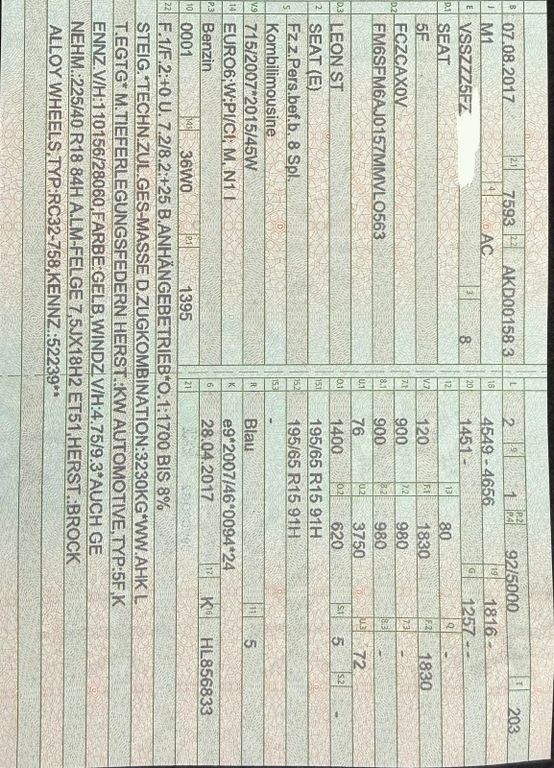 B 07.08.2017 2.1 7593 2.2 AKD00158 3
J M1 4 AC
E VSSZZZ5FZ 3 8
D.1 SEAT
5F
D.2 FCZCAX0V
FM6SFM6AJ0157MMVLO563
D.3 LEON ST
2 SEAT (E)
5 Fz.z.Pers.bef.b. 8 Spl.
Kombilimousine
V.9 715/2007*2015/45W
14 EURO6;W;PI/CI; M, N1 I
P.3 Benzin
10 0001 14.1 36W0 P.1 1395
L 2 9 1 P.2 P.4 92/5000 T 203
18 4549 - 4656 19 1816 -
20 1451 - G 1257 - -
12 - 13 80 Q -
V.7 120 F.1 1830 F.2 1830
7.1 900 7.2 980 7.3 -
8.1 900 8.2 980 8.3 -
U.1 76 U.2 3750 U.3 72
O.1 1400 O.2 620 S.1 5 S.2 -
15.1 195/65 R15 91H
15.2 195/65 R15 91H
15.3 -
R Blau 11 5
K e9*2007/46*0094*24
6 28.04.2017 17 K 16 HL856833
21
22 F.1/F.2:+0 U. 7.2/8.2:+25 B.ANHÄNGEBETRIEB*O.1:1700 BIS 8%
STEIG.*TECHN.ZUL.GES-MASSE D.ZUGKOMBINATION:3230KG*WW.AHK L
T.EGTG* M.TIEFERLEGUNGSFEDERN HERST.:KW AUTOMOTIVE,TYP:5F,K
ENNZ.V/H:110156/28060;FARBE:GELB,WINDZ.V/H:4.75/9,3*AUCH GE
NEHM.:225/40 R18 84H A.LM-FELGE 7,5JX18H2 ET51,HERST.:BROCK
ALLOY WHEELS;TYP:RC32-758,KENNZ.:52239**